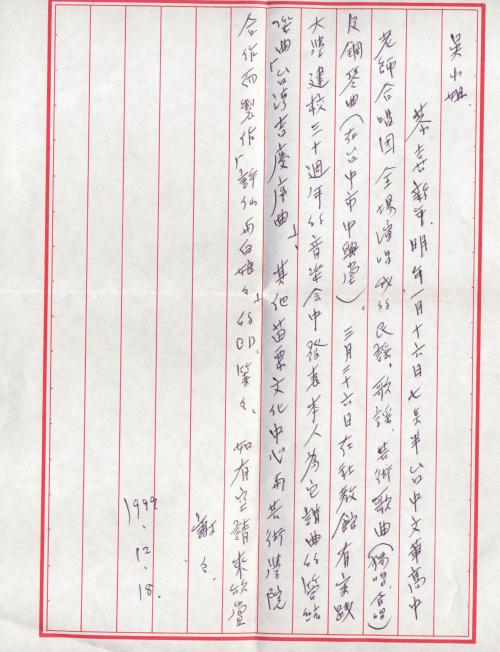 吳小姐
恭喜新年. 明年一月十六日七點半台中文華高中
老師合唱团全場演唱我的民謠. 歌謠. 芸術歌曲(獨唱. 合唱)
及鋼琴曲(在台中市中興堂)。三月二十六日在社教館有實践
大學建校三十週年的音楽会中發表本人為它譜曲的管絃
樂曲「台湾吉慶序曲」、其他苗栗文化中心而芸術學院
合作而製作「許仙而白娘々」的CD. 等々. 如有空請來欣賞
謝々
1999. 12. 18.